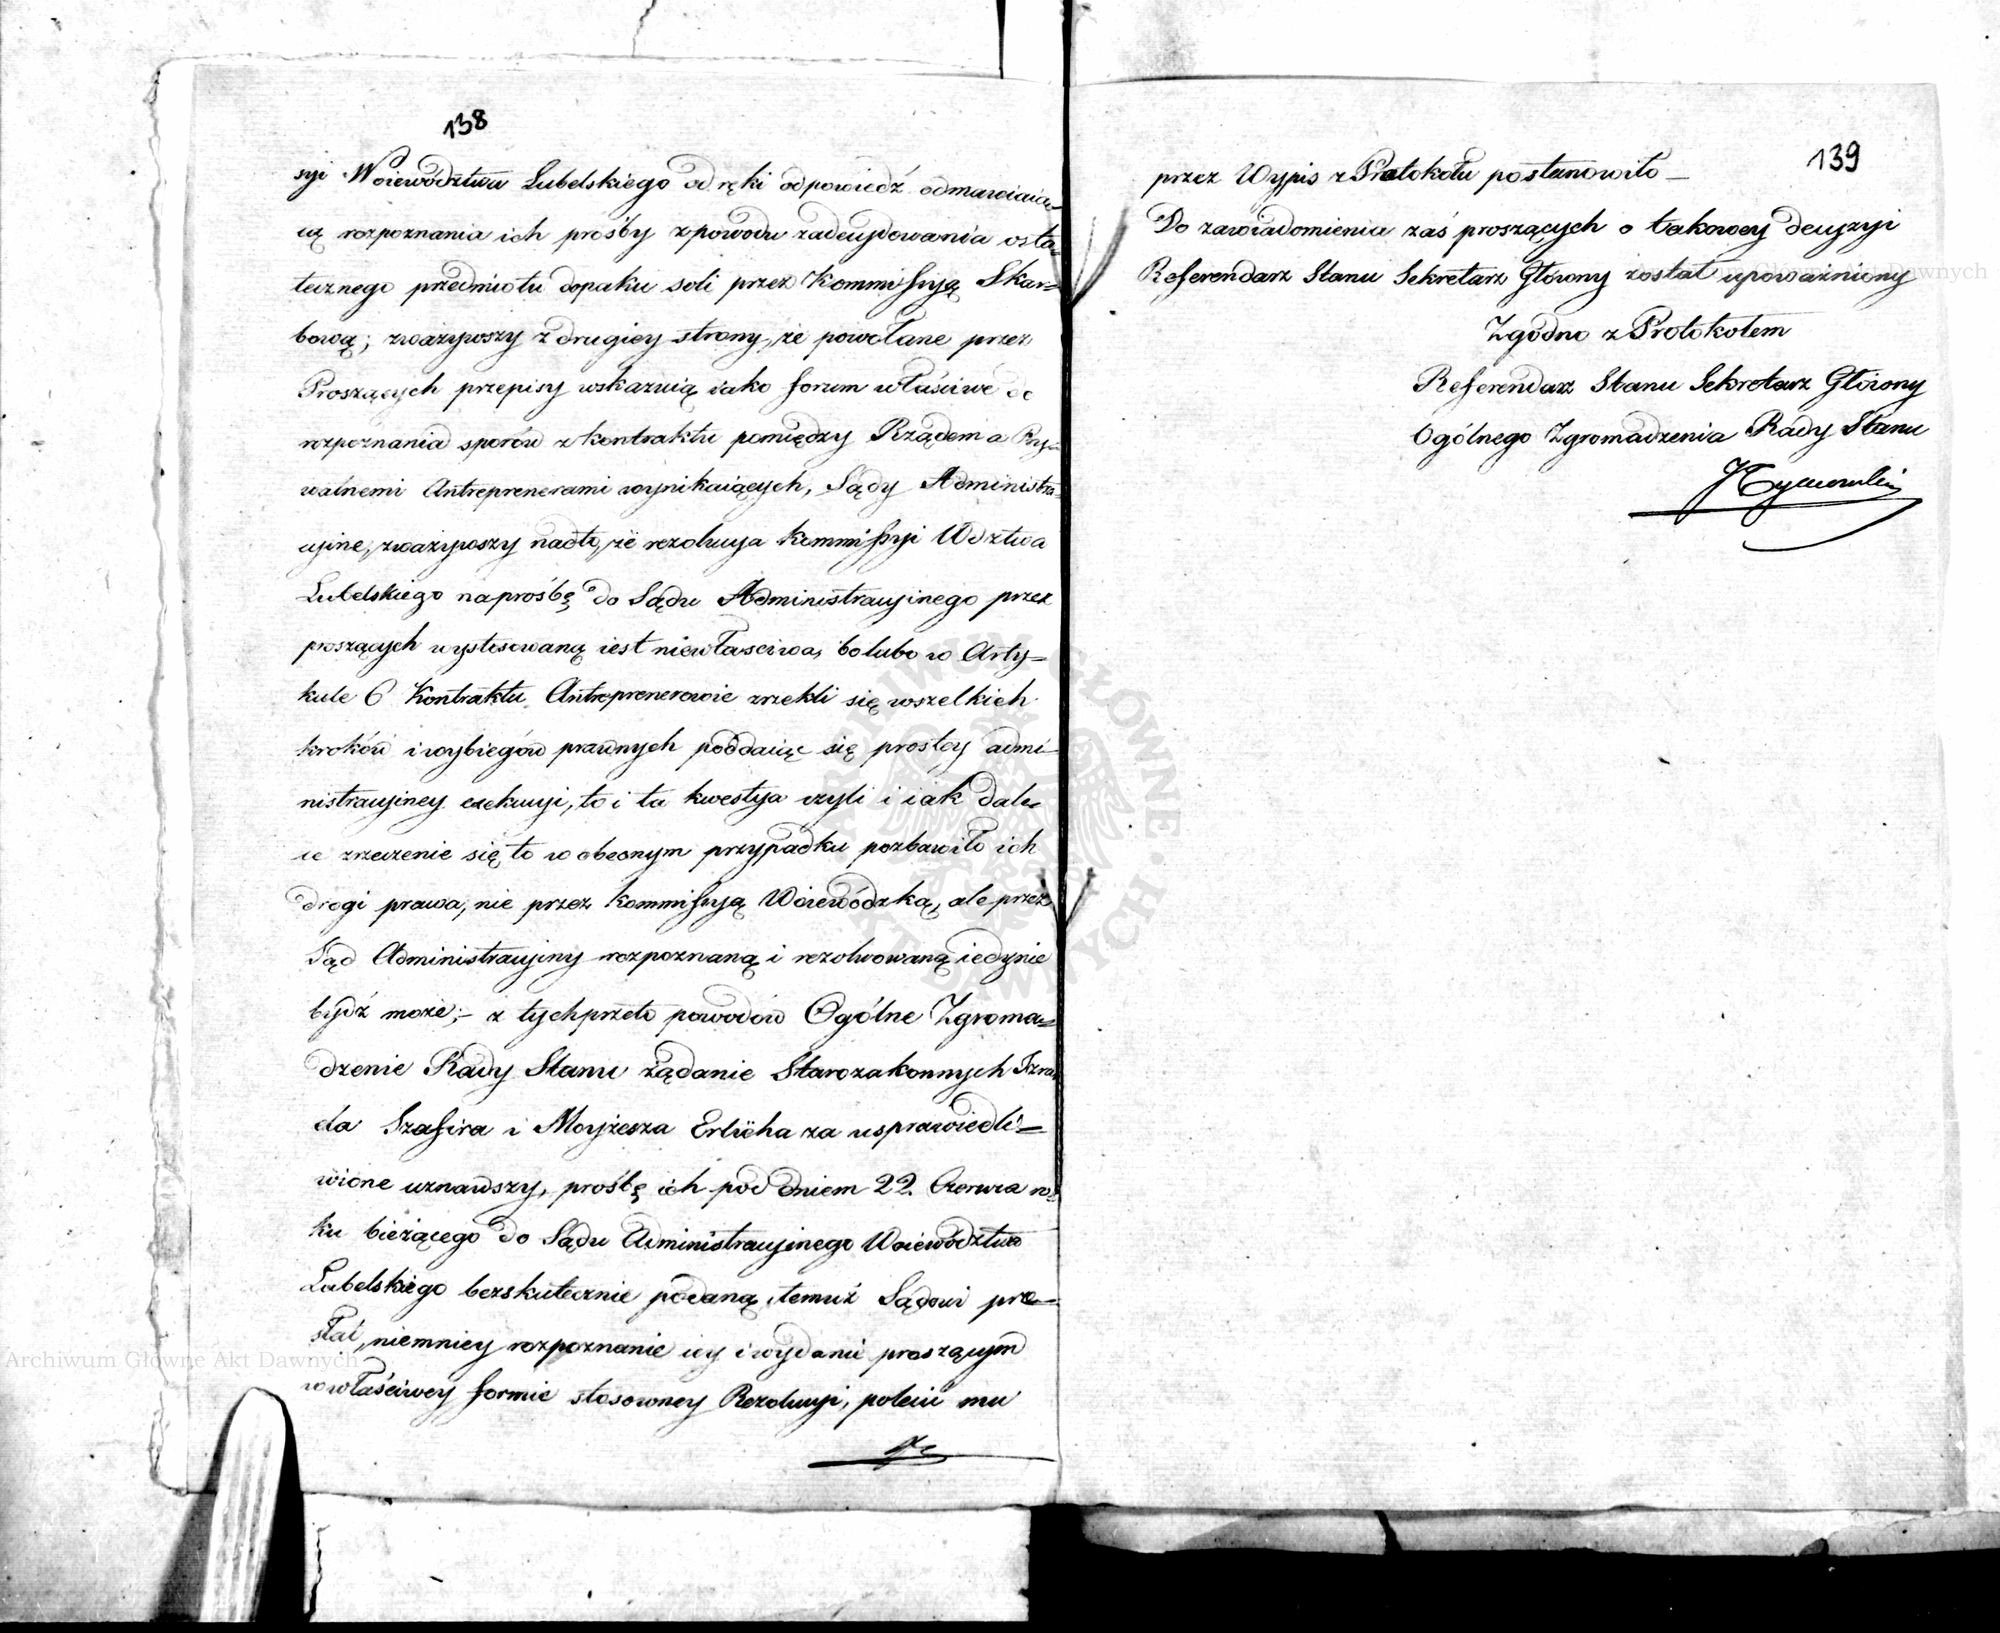 138
syi Woiewództwa Lubelskiego od ręki odpowiedź odmawiaią-
cą rozpoznania ich prośby z powodu zadecydowania osta-
tecznego przedmiotu dopaku soli przez Kommissyią Skar-
bową; zważywszy z drugiey strony, że powołane przez
Proszących przepisy wskazuią iako forum właściwe do
rozpoznania sporów z kontraktu pomiędzy Rządem a Pry-
watnemi Antreprenerami wynikaiących, Sądy Administra-
cyine, zważywszy nadto, że rezolucya Kommissyi Wdztwa
Lubelskiego na prośbę do Sądu Administracyinego przez
proszących wystosowaną iest niewłaściwa, bo lubo w Arty-
kule 6 Kontraktu Antreprenerowie zrzekli się wszelkich
kroków i wybiegów prawnych poddaiąc się prostey admi-
nistracyiney exekucyi, to i ta kwestya czyli i iak dale-
ce zrzeczenie się to w obecnym przypadku pozbawiło ich
drogi prawa, nie przez Kommissyią Woiewódzką, ale przez
Sąd Administracyiny rozpoznaną i rezolwowaną iedynie
bydź może; - z tych przeto powodów Ogólne Zgroma-
dzenie Rady Stanu żądanie Starozakonnych Izra-
ela Szafira i Moyżesza Erlicha za usprawiedli-
wione uznawszy, prośbę ich pod dniem 22. Czerwca ro-
ku bieżącego do Sądu Administracyinego Woiewództwa
Lubelskiego bezskutecznie podaną, temuż Sądowi prze-
słać, niemniey rozpoznanie iey i wydanie proszącym
w właściwey formie stosowney Rezolucyi, polecić mu
139
przez Wypis z Protokołu postanowiło -
Do zawiadomienia zaś proszących o takowey decyzyi
Referendarz Stanu Sekretarz Główny został upoważniony
Zgodno z Protokołem
Referendarz Stanu Sekretarz Główny
Ogólnego Zgromadzenia Rady Stanu
Archiwum Główne Akt Dawnych